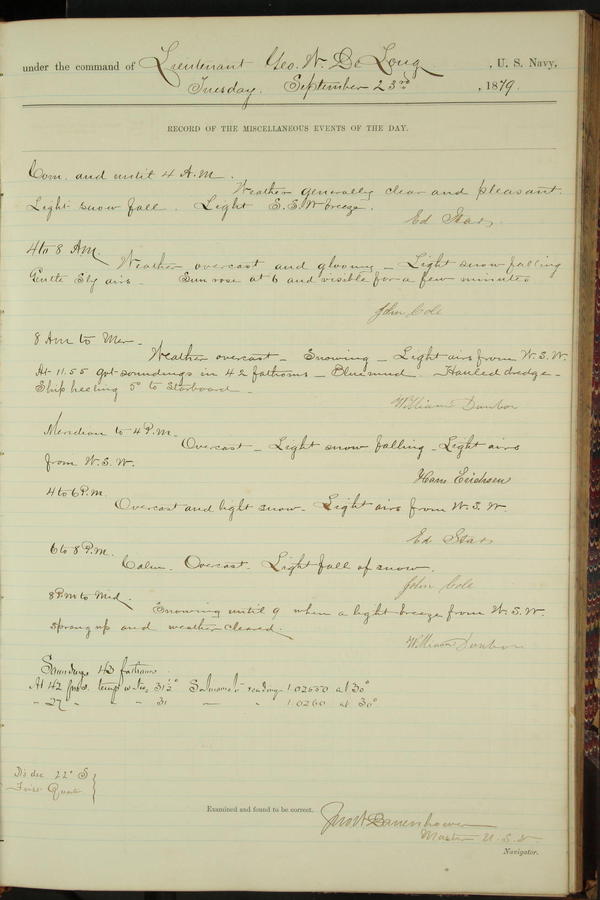 under the command of Lieutenant Geo. W. De Long, U. S. Navy,
Tuesday, September 23rd, 1879.
RECORD OF THE MISCELLANEOUS EVENTS OF THE DAY.
Com. and until 4 A.M.
Weather generally clear and pleasant.
Light snow fall. Light S.S.W. breeze.
Ed Starr
4 to 8 A.M.
Weather overcast and gloomy - Light snow falling
Gentle Sly airs - Sun rose at 6 and visible for a few minutes
John Cole
8 A.M. to Mer-
Weather overcast - Snowing - Light airs from W.S.W.
At 11.55 got soundings in 42 fathoms - Blue mud - Hauled dredge -
Ship heeling 5° to Starboard -
William Dunbar
Meridian to 4 P.M.
Overcast - Light snow falling - Light airs
from W.S.W.
Hans Erichsen
4 to 6 P.M.
Overcast and light snow. Light airs from W.S.W.
Ed Starr
6 to 8 P.M.
Calm. Overcast. Light fall of snow.
John Cole
8 P.M. to Mid.
Snowing until 9 when a light breeze from W.S.W.
sprang up and weather cleared.
William Dunbar
Soundings 43 fathoms.
At 42 fms. temp water 31½° Salinometer reading 1.02550 at 30°
" 27 " " " 31 — " 1.0260 at 30°
D's dec. 22° S
First Quart
Examined and found to be correct.
Jno W Danenhower
Master U.S.N
Navigator.